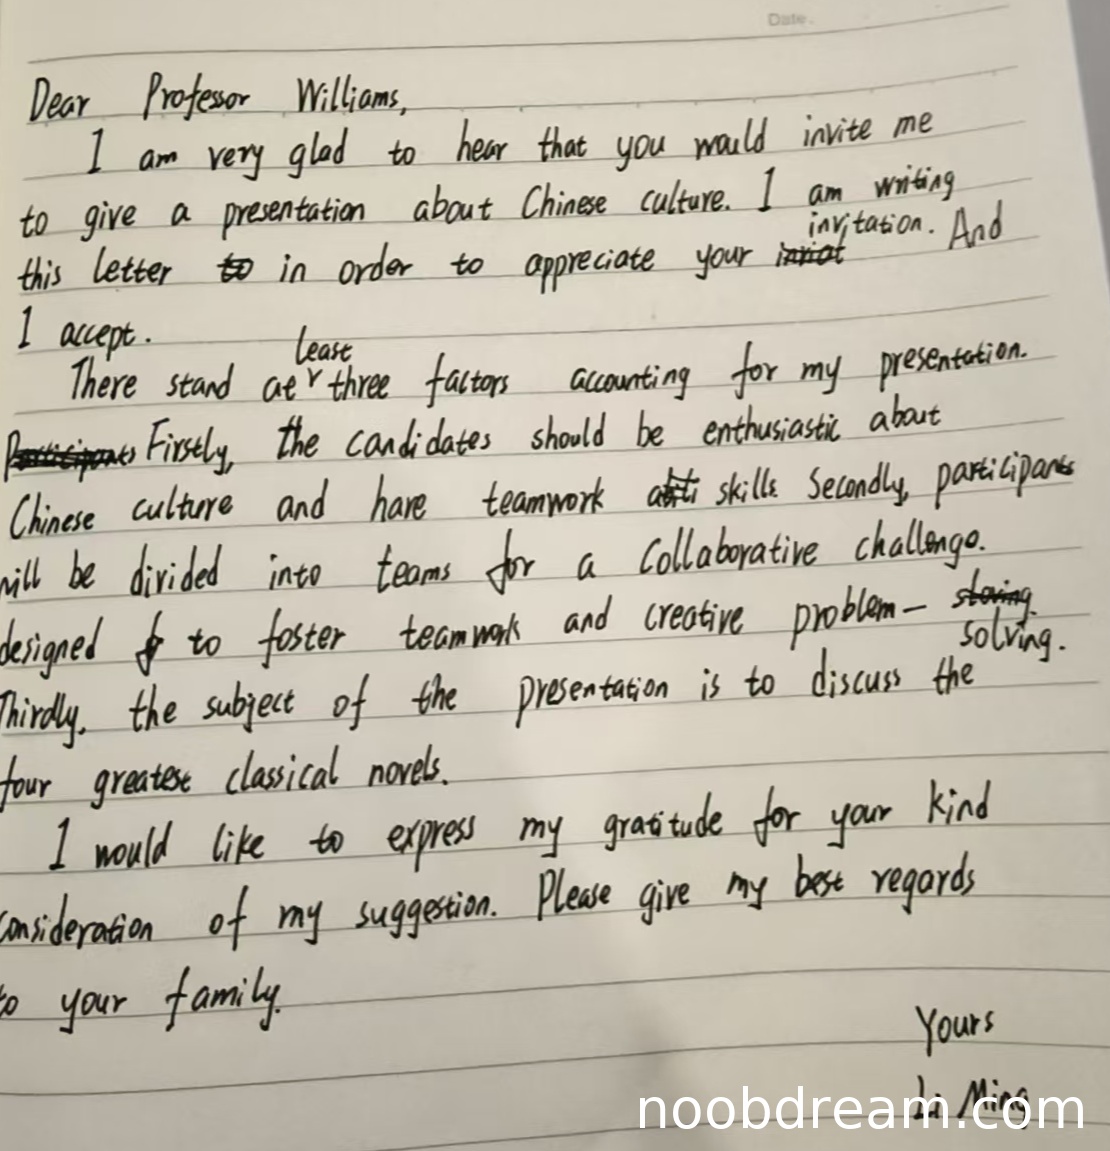 Date.
Dear Professor Williams,
I am very glad to hear that you would invite me
to give a presentation about Chinese culture. I am writing
this letter to in order to appreciate your invitation. And
I accept.
There stand at least three factors accounting for my presentation.
Participants Firstly, the candidates should be enthusiastic about
Chinese culture and have teamwork skills. Secondly, participants
will be divided into teams for a collaborative challenge.
designed to foster teamwork and creative problem-solving.
Thirdly, the subject of the presentation is to discuss the
four greatest classical novels.
I would like to express my gratitude for your kind
consideration of my suggestion. Please give my best regards
to your family.
Yours
Li Ming
noobdream.com